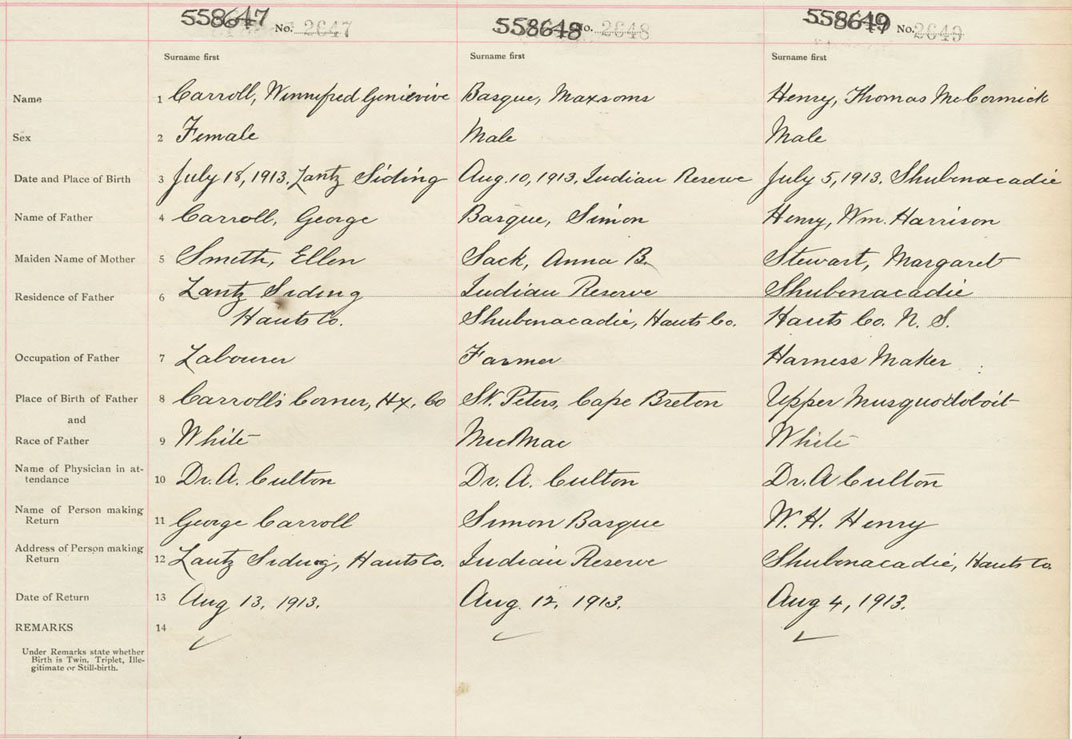 558647 No. 2647 558648 No. 2648 558649 No. 2649
Surname first Surname first Surname first
Name 1 Carroll, Winnifred Genievive Basque, Maxsoms Henry, Thomas McCormick
Sex 2 Female Male Male
Date and Place of Birth 3 July 18, 1913, Lantz Siding Aug. 10, 1913, Indian Reserve July 5, 1913. Shubenacadie
Name of Father 4 Carroll, George Basque, Simon Henry, Wm. Harrison
Maiden Name of Mother 5 Smith, Ellen Sack, Anna B. Stewart, Margaret
Residence of Father 6 Lantz Siding Indian Reserve Shubenacadie
Hants Co. Shubenacadie, Hants Co. Hants Co. N. S.
Occupation of Father 7 Labourer Farmer Harness Maker
Place of Birth of Father 8 Carroll's Corner, Hx. Co St. Peters, Cape Breton Upper Musquodoboit
and
Race of Father 9 White MicMac White
Name of Physician in at-
tendance 10 Dr. A. Culton Dr. A. Culton Dr. A Culton
Name of Person making
Return 11 George Carroll Simon Basque W. H. Henry
Address of Person making
Return 12 Lantz Siding, Hants Co. Indian Reserve Shubenacadie, Hants Co
Date of Return 13 Aug 13, 1913. Aug. 12, 1913. Aug 4, 1913.
REMARKS 14
Under Remarks state whether
Birth is Twin, Triplet, Ille-
gitimate or Still-birth.